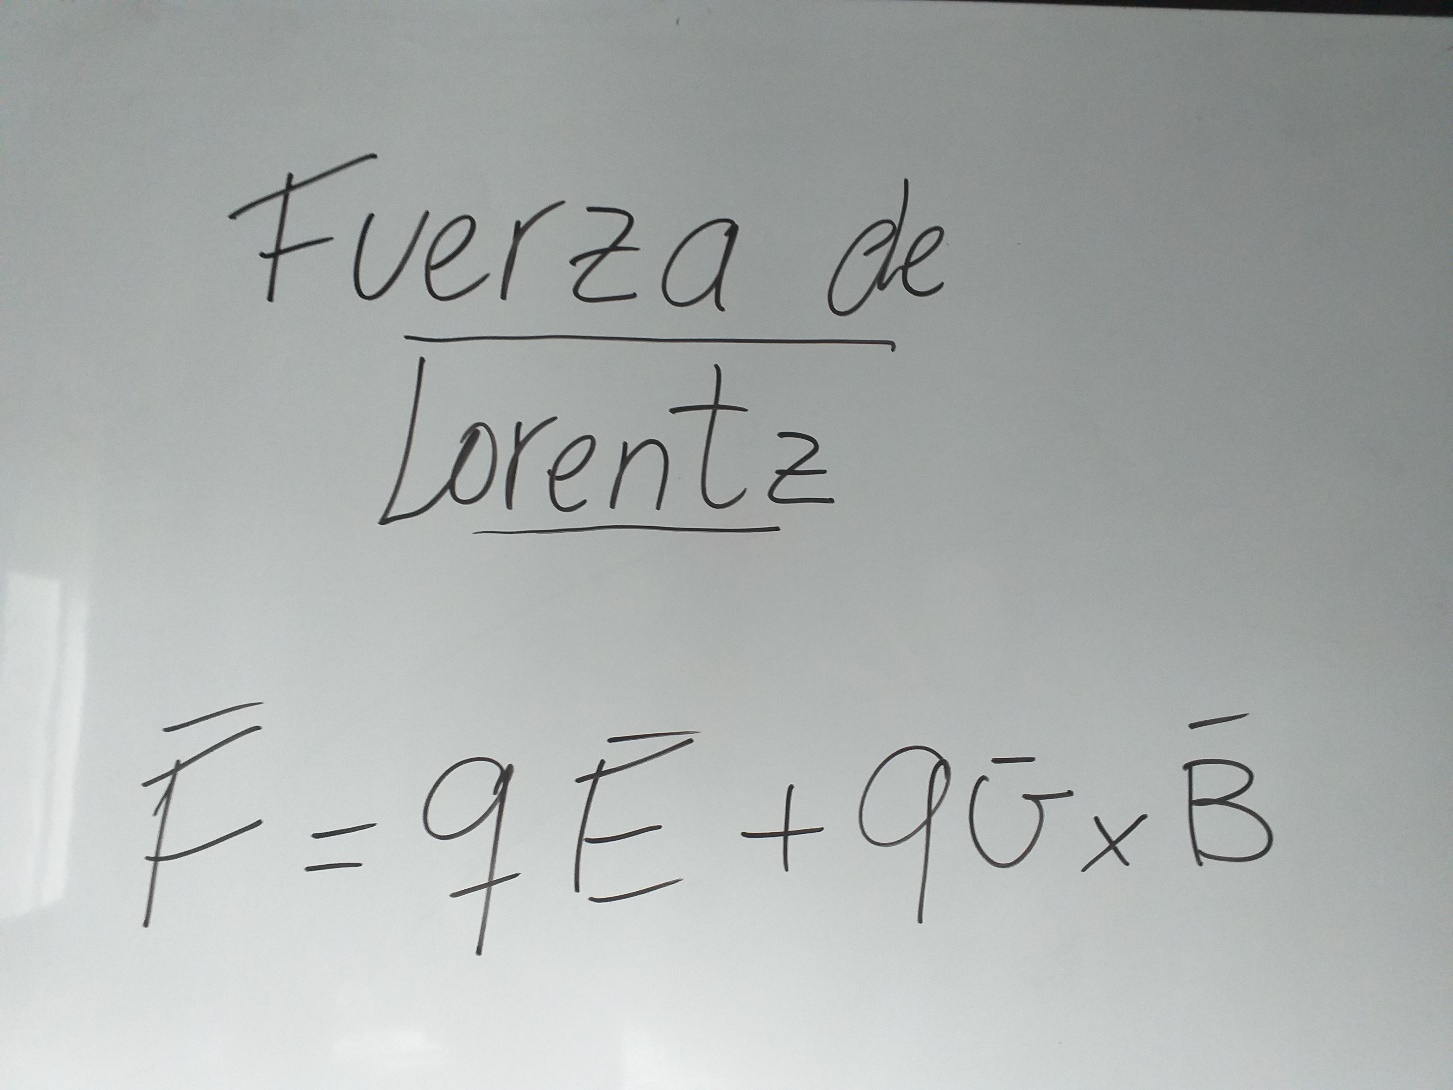 Fuerza de
Lorentz
F̄ = qĒ + qv̄ × B̄